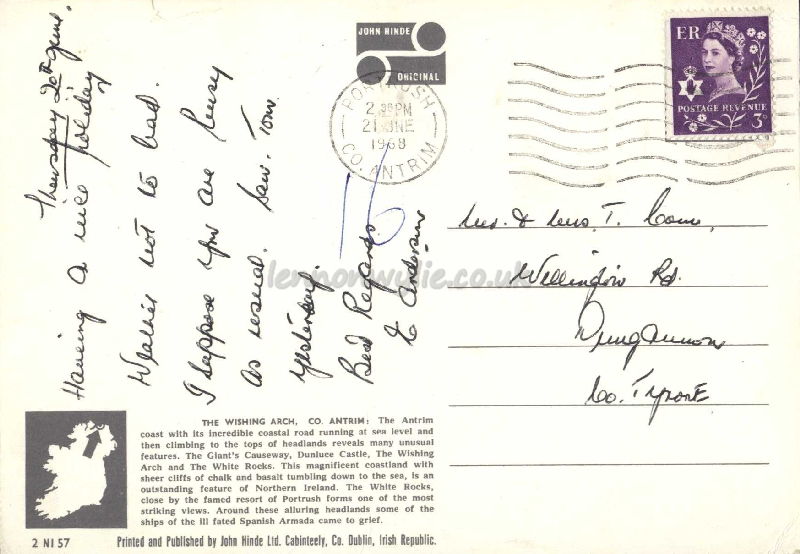 Thursday 20th June.
Having a nice holiday
Weather not to bad.
I suppose you are busy
as usual. Saw. Tom.
yesterday.
Best Regards
E Anderson
JOHN HINDE
ORIGINAL
PORTRUSH
2 PM
21 JNE
1968
CO. ANTRIM
ER
POSTAGE REVENUE
3D
Mr. & Mrs. T.
Wellington Rd.
Dungannon
Co. Tyrone
lennonwylie.co.uk
THE WISHING ARCH, CO. ANTRIM: The Antrim
coast with its incredible coastal road running at sea level and
then climbing to the tops of headlands reveals many unusual
features. The Giant's Causeway, Dunluce Castle, The Wishing
Arch and The White Rocks. This magnificent coastland with
sheer cliffs of chalk and basalt tumbling down to the sea, is
an outstanding feature of Northern Ireland. The White Rocks,
close by the famed resort of Portrush forms one of the most
striking views. Around these alluring headlands some of the
ships of the ill fated Spanish Armada came to grief.
2 NI 57
Printed and Published by John Hinde Ltd. Cabinteely, Co. Dublin, Irish Republic.